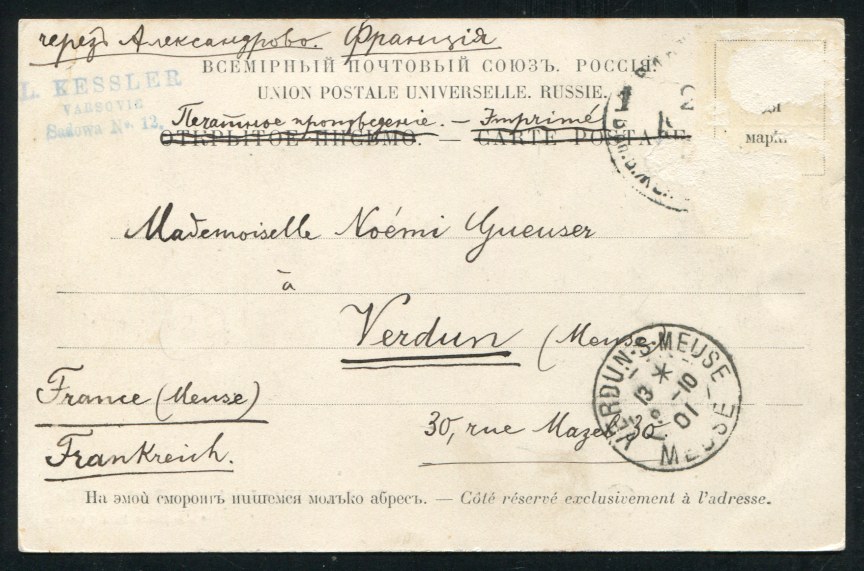 черезъ Александрово. Франція
ВСЕМІРНЫЙ ПОЧТОВЫЙ СОЮЗЪ. РОССІЯ
UNION POSTALE UNIVERSELLE. RUSSIE.
L. KESSLER
VARSOVIE
Sadowa No. 12.
Печатное произведеніе. — Imprimé
ОТКРЫТОЕ ПИСЬМО. — CARTE POSTALE
марк
Mademoiselle Noémi Gueuser
à
Verdun (Meuse.)
VERDUN-S-MEUSE
13 -10
01
MEUSE
France (Meuse)
30, rue Mazel 30
Frankreich.
На этой сторонѣ пишется только адресъ. — Côté réservé exclusivement à l'adresse.